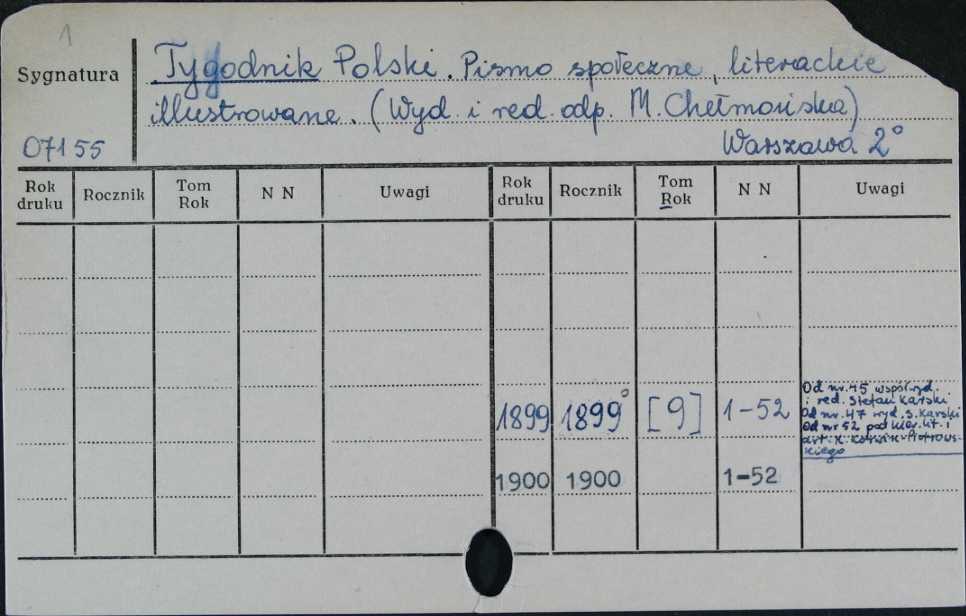 1
Sygnatura
Tygodnik Polski. Pismo społeczne, literackie
illustrowane. (Wyd. i red. odp. M. Chełmońska)
07155
Warszawa 2°
Rok druku Rocznik Tom Rok N N Uwagi Rok druku Rocznik Tom Rok N N Uwagi
Od nr. 45 współwyd.
i red. Stefan Karski
Od nr. 47 wyd. S. Karski
Od nr 52 pod kier. lit. i
art. K. -Piotrows-
kiego
1899 1899° [9] 1-52
1900 1900 1-52